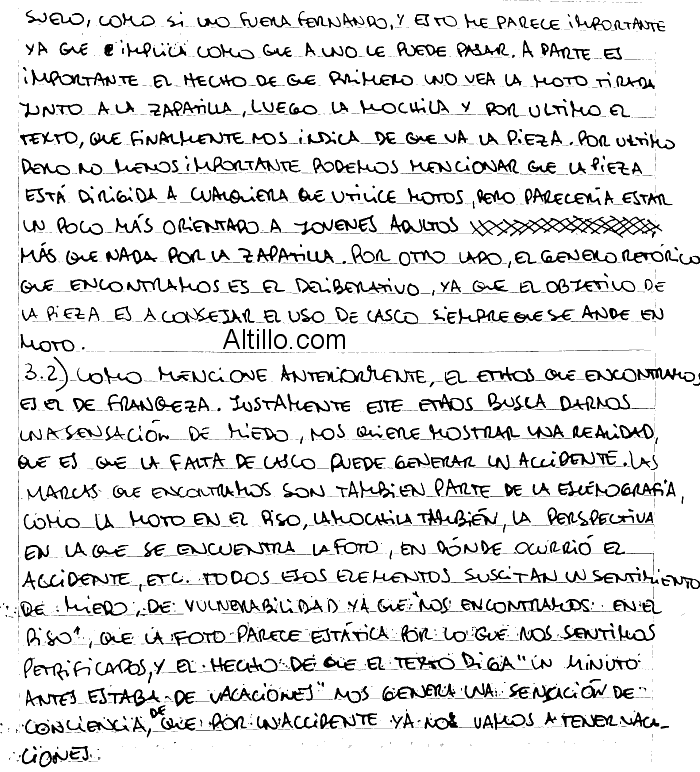 SUELO, COMO SI UNO FUERA FERNANDO, Y ESTO ME PARECE IMPORTANTE
YA QUE IMPLICA COMO QUE A UNO LE PUEDE PASAR. A PARTE ES
IMPORTANTE EL HECHO DE QUE PRIMERO UNO VEA LA MOTO TIRADA
JUNTO A LA ZAPATILLA, LUEGO LA MOCHILA Y POR ULTIMO EL
TEXTO, QUE FINALMENTE NOS INDICA DE QUE VA LA PIEZA. POR ULTIMO
PERO NO MENOS IMPORTANTE PODEMOS MENCIONAR QUE LA PIEZA
ESTÁ DIRIGIDA A CUALQUIERA QUE UTILICE MOTOS, PERO PARECERIA ESTAR
UN POCO MÁS ORIENTADO A JOVENES ADULTOS
MÁS QUE NADA POR LA ZAPATILLA. POR OTRO LADO, EL GENERO RETÓRICO
QUE ENCONTRAMOS ES EL DELIBERATIVO, YA QUE EL OBJETIVO DE
LA PIEZA ES ACONSEJAR EL USO DE CASCO SIEMPRE QUE SE ANDE EN
MOTO.
Altillo.com
3.2) COMO MENCIONE ANTERIORMENTE, EL ETHOS QUE ENCONTRAMOS
ES EL DE FRANQEZA. JUSTAMENTE ESTE ETHOS BUSCA DARNOS
UNA SENSACIÓN DE MIEDO, NOS QUIERE MOSTRAR UNA REALIDAD,
QUE ES QUE LA FALTA DE CASCO PUEDE GENERAR UN ACCIDENTE. LAS
MARCAS QUE ENCONTRAMOS SON TAMBIEN PARTE DE LA ESCENOGRAFÍA,
COMO LA MOTO EN EL PISO, LA MOCHILA TAMBIÉN, LA PERSPECTIVA
EN LA QUE SE ENCUENTRA LA FOTO, EN DÓNDE OCURRIÓ EL
ACCIDENTE, ETC. TODOS ESOS ELEMENTOS SUSCITAN UN SENTIMIENTO
DE MIEDO, DE VULNERABILIDAD YA QUE "NOS ENCONTRAMOS EN EL
PISO", QUE LA FOTO PARECE ESTÁTICA POR LO QUE NOS SENTIMOS
PETRIFICADOS, Y EL HECHO DE QUE EL TEXTO DIGA "UN MINUTO
ANTES ESTABA DE VACACIONES" NOS GENERA UNA SENSACIÓN DE
CONSCIENCIA, DE QUE POR UN ACCIDENTE YA NOS VAMOS A TENER VACA-
CIONES.